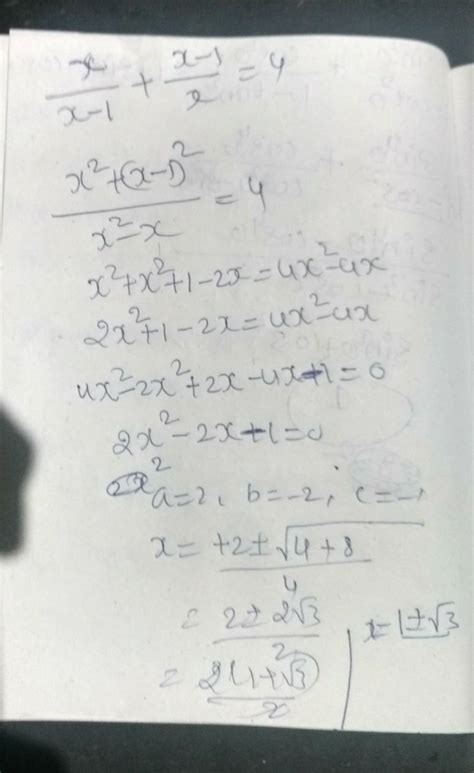 x/(x-1) + (x-1)/x = 4
(x²+(x-1)²)/(x²-x) = 4
x²+x²+1-2x = 4x²-4x
2x²+1-2x = 4x²-4x
4x²-2x²+2x-4x-1=0
2x²-2x-1=0
a=2, b=-2, c=-1
x = (+2±√(4+8))/4
= (2±2√3)/4
= 2(1±√3)/4
x = (1±√3)/2